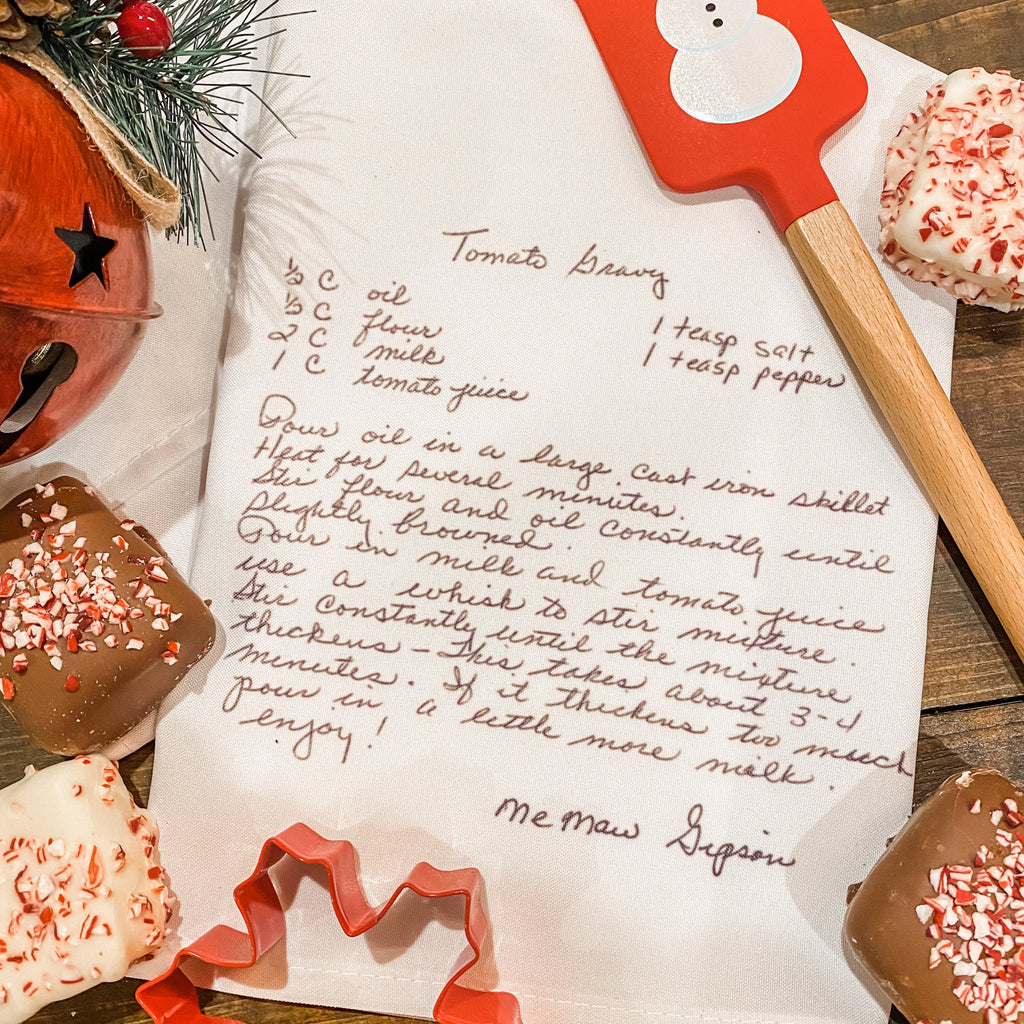 Tomato Gravy
1/2 C oil
1/2 C flour
2 C milk
1 C tomato juice
1 teasp salt
1 teasp pepper
Pour oil in a large cast iron skillet
Heat for several minutes.
Stir flour and oil constantly until
slightly browned.
Pour in milk and tomato juice
use a whisk to stir mixture.
Stir constantly until the mixture
thickens - This takes about 3-4
minutes. If it thickens too much
pour in a little more milk.
enjoy!
MeMaw Gipson